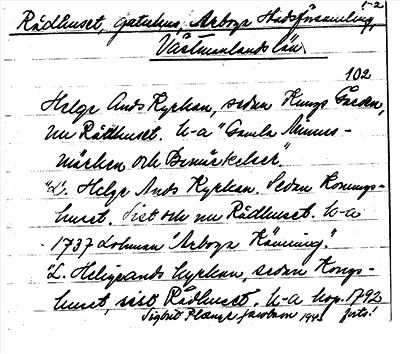 1-2
Rådhuset, gatuhus, Arboga Stadsförsamling,
Västmanlands län.
102
Helge Ands Kyrkan, sedan Kungs Gården,
nu Rådhuset. U-a "Gamla Minnes-
märken och Benäckelser".
"L. Helge Ands Kyrkan. Sedan Konungs-
huset. Sist och nu Rådhuset. U-a
1737 Lohman "Arboga Känning".
"L. Heligeands kyrkan, sedan Kongs-
huset, sist Rådhuset. U-a kop. 1792
Sigbrit Plænge Jacobson 1943 forts!